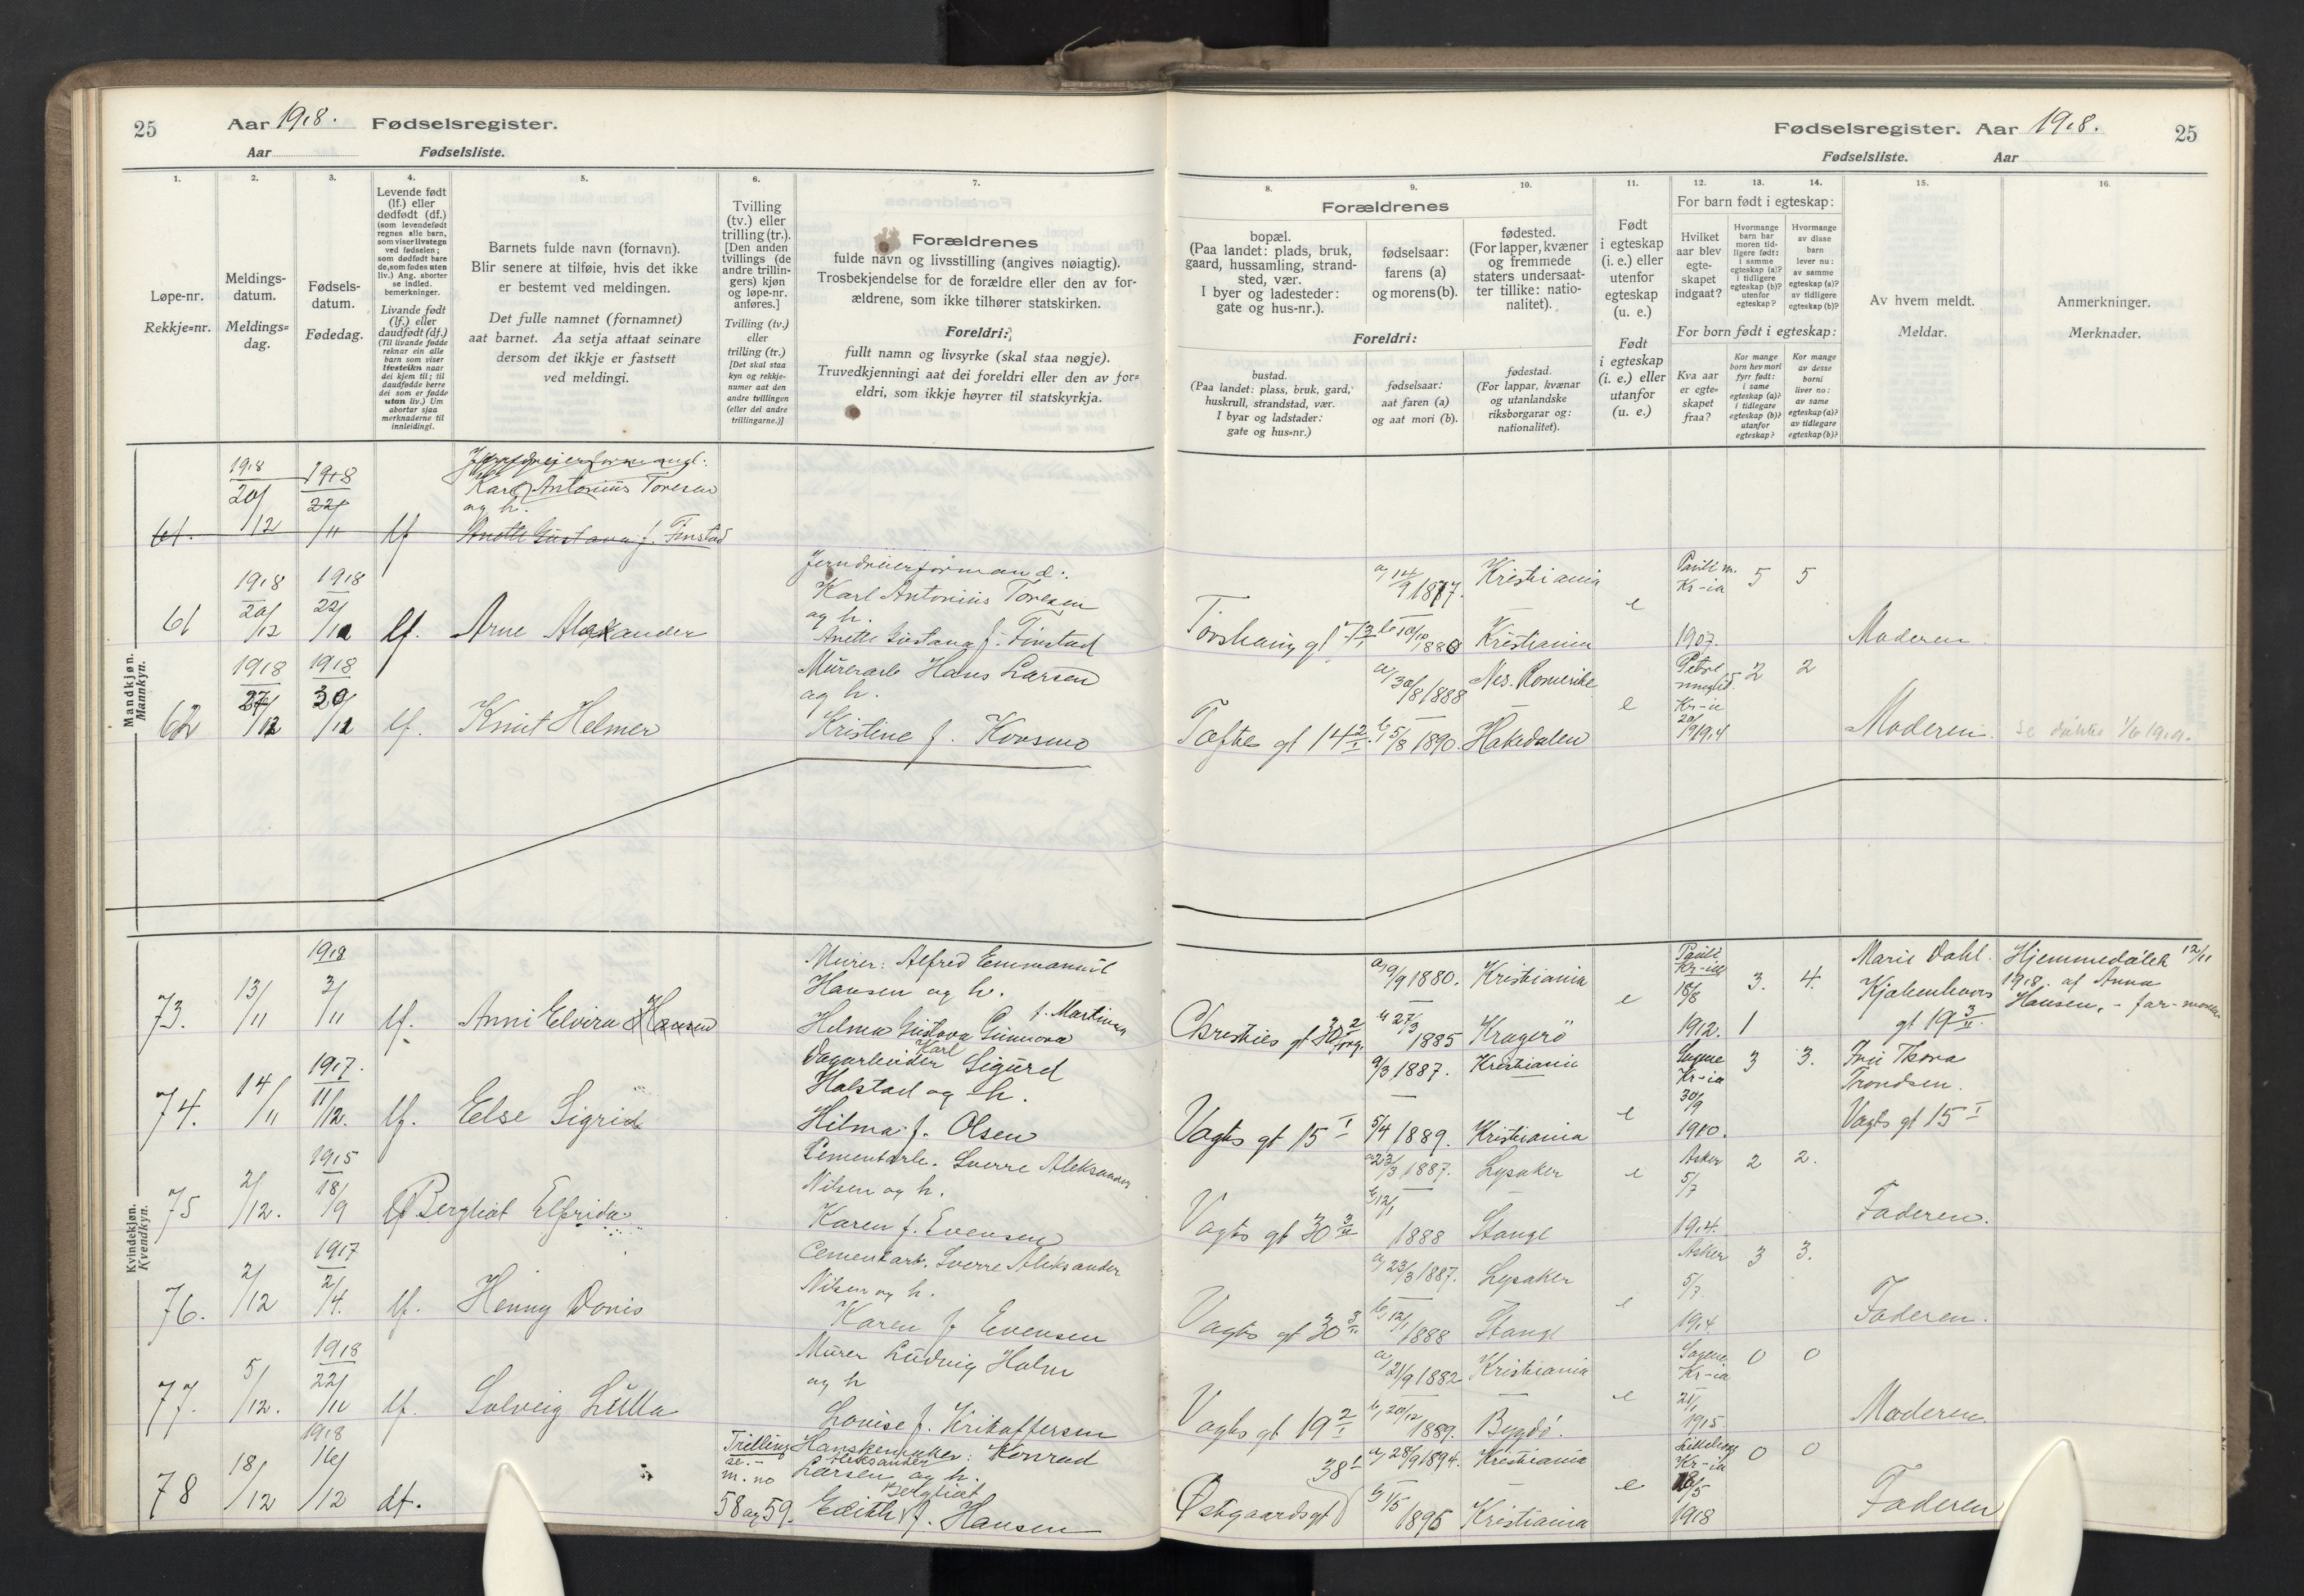 25
Aar 1918.
Fødselsregister.
Aar
Fødselsliste.
1.
2.
3.
4.
5.
6.
7.
Løpe-nr.
Rekkje=nr.
Meldings-
datum.
Meldings=
dag.
Fødsels-
datum.
Fødedag.
Levende født
(lf.) eller
dødfødt (df.)
(som levendefødt
regnes alle barn,
som viser livstegn
ved fødselen;
som dødfødt bare
de, som fødes uten
liv.) Ang. aborter
se indled.
bemerkninger.
Livande født
(lf.) eller
daudfødt (df.)
(Til livande fødde
reknar ein alle
barn som viser
livsteikn naar
dei kjem til; til
daudfødde berre
dei som er fødde
utan liv.) Um
abortar sjaa
merknaderne til
innleidingi.
Barnets fulde navn (fornavn).
Blir senere at tilføie, hvis det ikke
er bestemt ved meldingen.
Det fulle namnet (fornamnet)
aat barnet. Aa setja attaat seinare
dersom det ikkje er fastsett
ved meldingi.
Tvilling
(tv.) eller
trilling (tr.).
[Den anden
tvillings (de
andre trillin-
gers) kjøn
og løpe-nr.
anføres.]
Tvilling (tv.)
eller
trilling (tr.)
[Det skal staa
kyn og rekkje-
numer aat den
andre tvillingen
(eller dei andre
trillingarne.)]
Forældrenes
fulde navn og livsstilling (angives nøiagtig).
Trosbekjendelse for de forældre eller den av for-
ældrene, som ikke tilhører statskirken.
Foreldri:
fullt namn og livsyrke (skal staa nøgje).
Truvedkjenningi aat dei foreldri eller den av for=
eldri, som ikkje høyrer til statskyrkja.
Mandkjøn.
Mannkyn.
61.
1918
20/12
1918
22/11
lf
Karl Antonius Toresen
og h.
Anette Gustava f. Finstad
61
1918
20/12
1918
22/11
lf.
Arne Alexander
Jerndreierformand:
Karl Antonius Toresen
og h.
Anette Gustava f. Finstad
62
1918
27/12
1918
30/11
lf.
Knut Helmer
Murerarb Hans Larsen
og h.
Kristine f. Korsmo
Kvindekjøn.
Kvendkyn.
73.
13/11
1918
3/11
lf.
Anni Elvira Hansen
Murer: Alfred Emmanuel
Hansen og h.
f. Martinsen
Helma Gustava Gunnora
74.
14/11
1917.
11/12.
lf.
Else Sigrid
Vognarbeider Karl Sigurd
Halstad og h.
Hilma f. Olsen
75
2/12.
1915
18/9
lf
Bergliot Elfrida
Cementarb. Sverre Aleksander
Nilsen og h.
Karen f. Evensen
76.
2/12
1917
2/4.
lf.
Henny Doris
Cementarb. Sverre Aleksander
Nilsen og h.
Karen f Evensen
77.
5/12.
1918
22/11
lf.
Solveig Lulla
Murer Ludvig Holm
og h
Lovise f. Kristoffersen
78
18/12
1918
16/12
df.
Trilling
se.
m. no
58 og 59.
Hanskemaker: Konrad
Aleksander
Larsen og h.
Bergliot
Edith f. Hansen
Fødselsregister. Aar 1918.
25
Fødselsliste.
Aar
8.
9.
10.
11.
12.
13.
14.
15.
16.
Forældrenes
bopæl.
(Paa landet: plads, bruk,
gaard, hussamling, strand-
sted, vær.
I byer og ladesteder:
gate og hus-nr.).
fødselsaar:
farens (a)
og morens (b).
fødested.
(For lapper, kvæner
og fremmede
staters undersaat-
ter tillike: natio-
nalitet).
Foreldri:
bustad.
(Paa landet: plass, bruk, gard,
huskrull, strandstad, vær.
I byar og ladstader:
gate og hus=nr.)
fødselsaar:
aat faren (a)
og aat mori (b).
fødestad.
(For lappar, kvænar
og utanlandske
riksborgarar og:
nationalitet).
Født
i egteskap
(i. e.) eller
utenfor
egteskap
(u. e.)
Født
i egteskap
(i. e.) eller
utanfor
egteskap
(u. e.)
For barn født i egteskap:
Hvilket
aar blev
egte-
skapet
indgaat?
Hvormange
barn har
moren tid-
ligere født:
i samme
egteskap (a)?
i tidligere
egteskap (b)?
utenfor
egteskap?
Hvormange
av disse
barn
lever nu:
av samme
egteskap (a)?
av tidligere
egteskap (b)?
For born født i egteskap:
Kva aar
er egte=
skapet
fraa?
Kor mange
born hev mori
fyrr født:
i same
egteskap (a)?
i tidlegare
egteskap (b)?
utanfor
egteskap?
Kor mange
av desse
borni
liver no:
av same
egteskap (a)?
av tidlegare
egteskap (b)?
Av hvem meldt.
Meldar.
Anmerkninger.
Merknader.
a, 14/9 1877.
Kristiania
Pauli m.
Kr-ia
5
5
e
Torshaug gt
b 10/10 1880
Kristiania
1907.
Moderen
a/ 30/8 1888
Nes. Romerike
Petri
Kr-ia
2
2
e
Toftes gt 14 2/I.
b, 5/8 1890.
Hakedalen
20/9 1914
Moderen.
a, 9/9 1880.
Kristiania
Pauli
Kr-ia
18/8
3.
4.
Marie Dahl.
Kjøbenhavns
gt 19 3/II.
Hjemmedøbt 12/11
1918. af Anna
Hansen, - far-moder
e
Christies gt 30 2/opg.
b 27/3 1885
Kragerö
1912.
1
9/3 1887.
Kristiania
Sagene
Kr-ia
30/9
3
3.
Fru Thora
Trondsen.
Vogts gt 15 I
e
Vogts gt 15 I
5/4 1889.
Kristiania
1910.
a 23/3 1887.
Lysaker
e
Asker
5/7
2
2.
Vogts gt 30 3/II
b 12/1
1888
Stange
1914.
Faderen.
a, 23/3 1887.
Lysaker
Asker
5/7.
3
3.
e
Vogts gt 30 3/II
b, 12/1 1888
Stange
1914.
Faderen.
a, 21/9 1882
Kristiania
Sagene
Kr-ia
0
0
e
Vogts gt 19 2/I
b, 20/12 1889.
Bygdö.
21/1
1915.
Moderen
38 I
a, 28/9 1894.
Kristiania
Lilleborg
Kr-ia
0
0
e
Østgaardsgt
b 1/5
1895
Kristiania
18/5
1918
Faderen